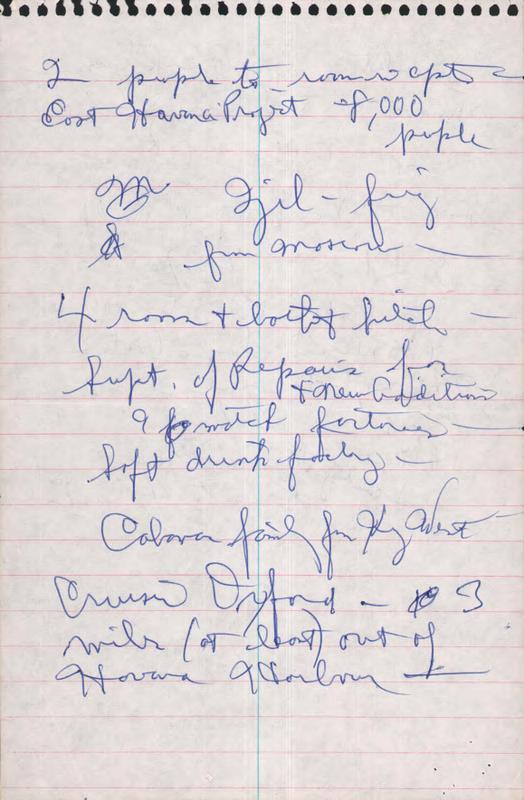 2 people to room in apts -
East Havana Project - 8,000
people
Zil - frig
from Moscow —
4 room + bath + kitch —
Supt. of Repairs for
+ new Addition
9 match factories —
Soft drink factory —
Cuban family fm Key West
Cruiser Oxford - 3
miles (at least) out of
Havana Harbour —